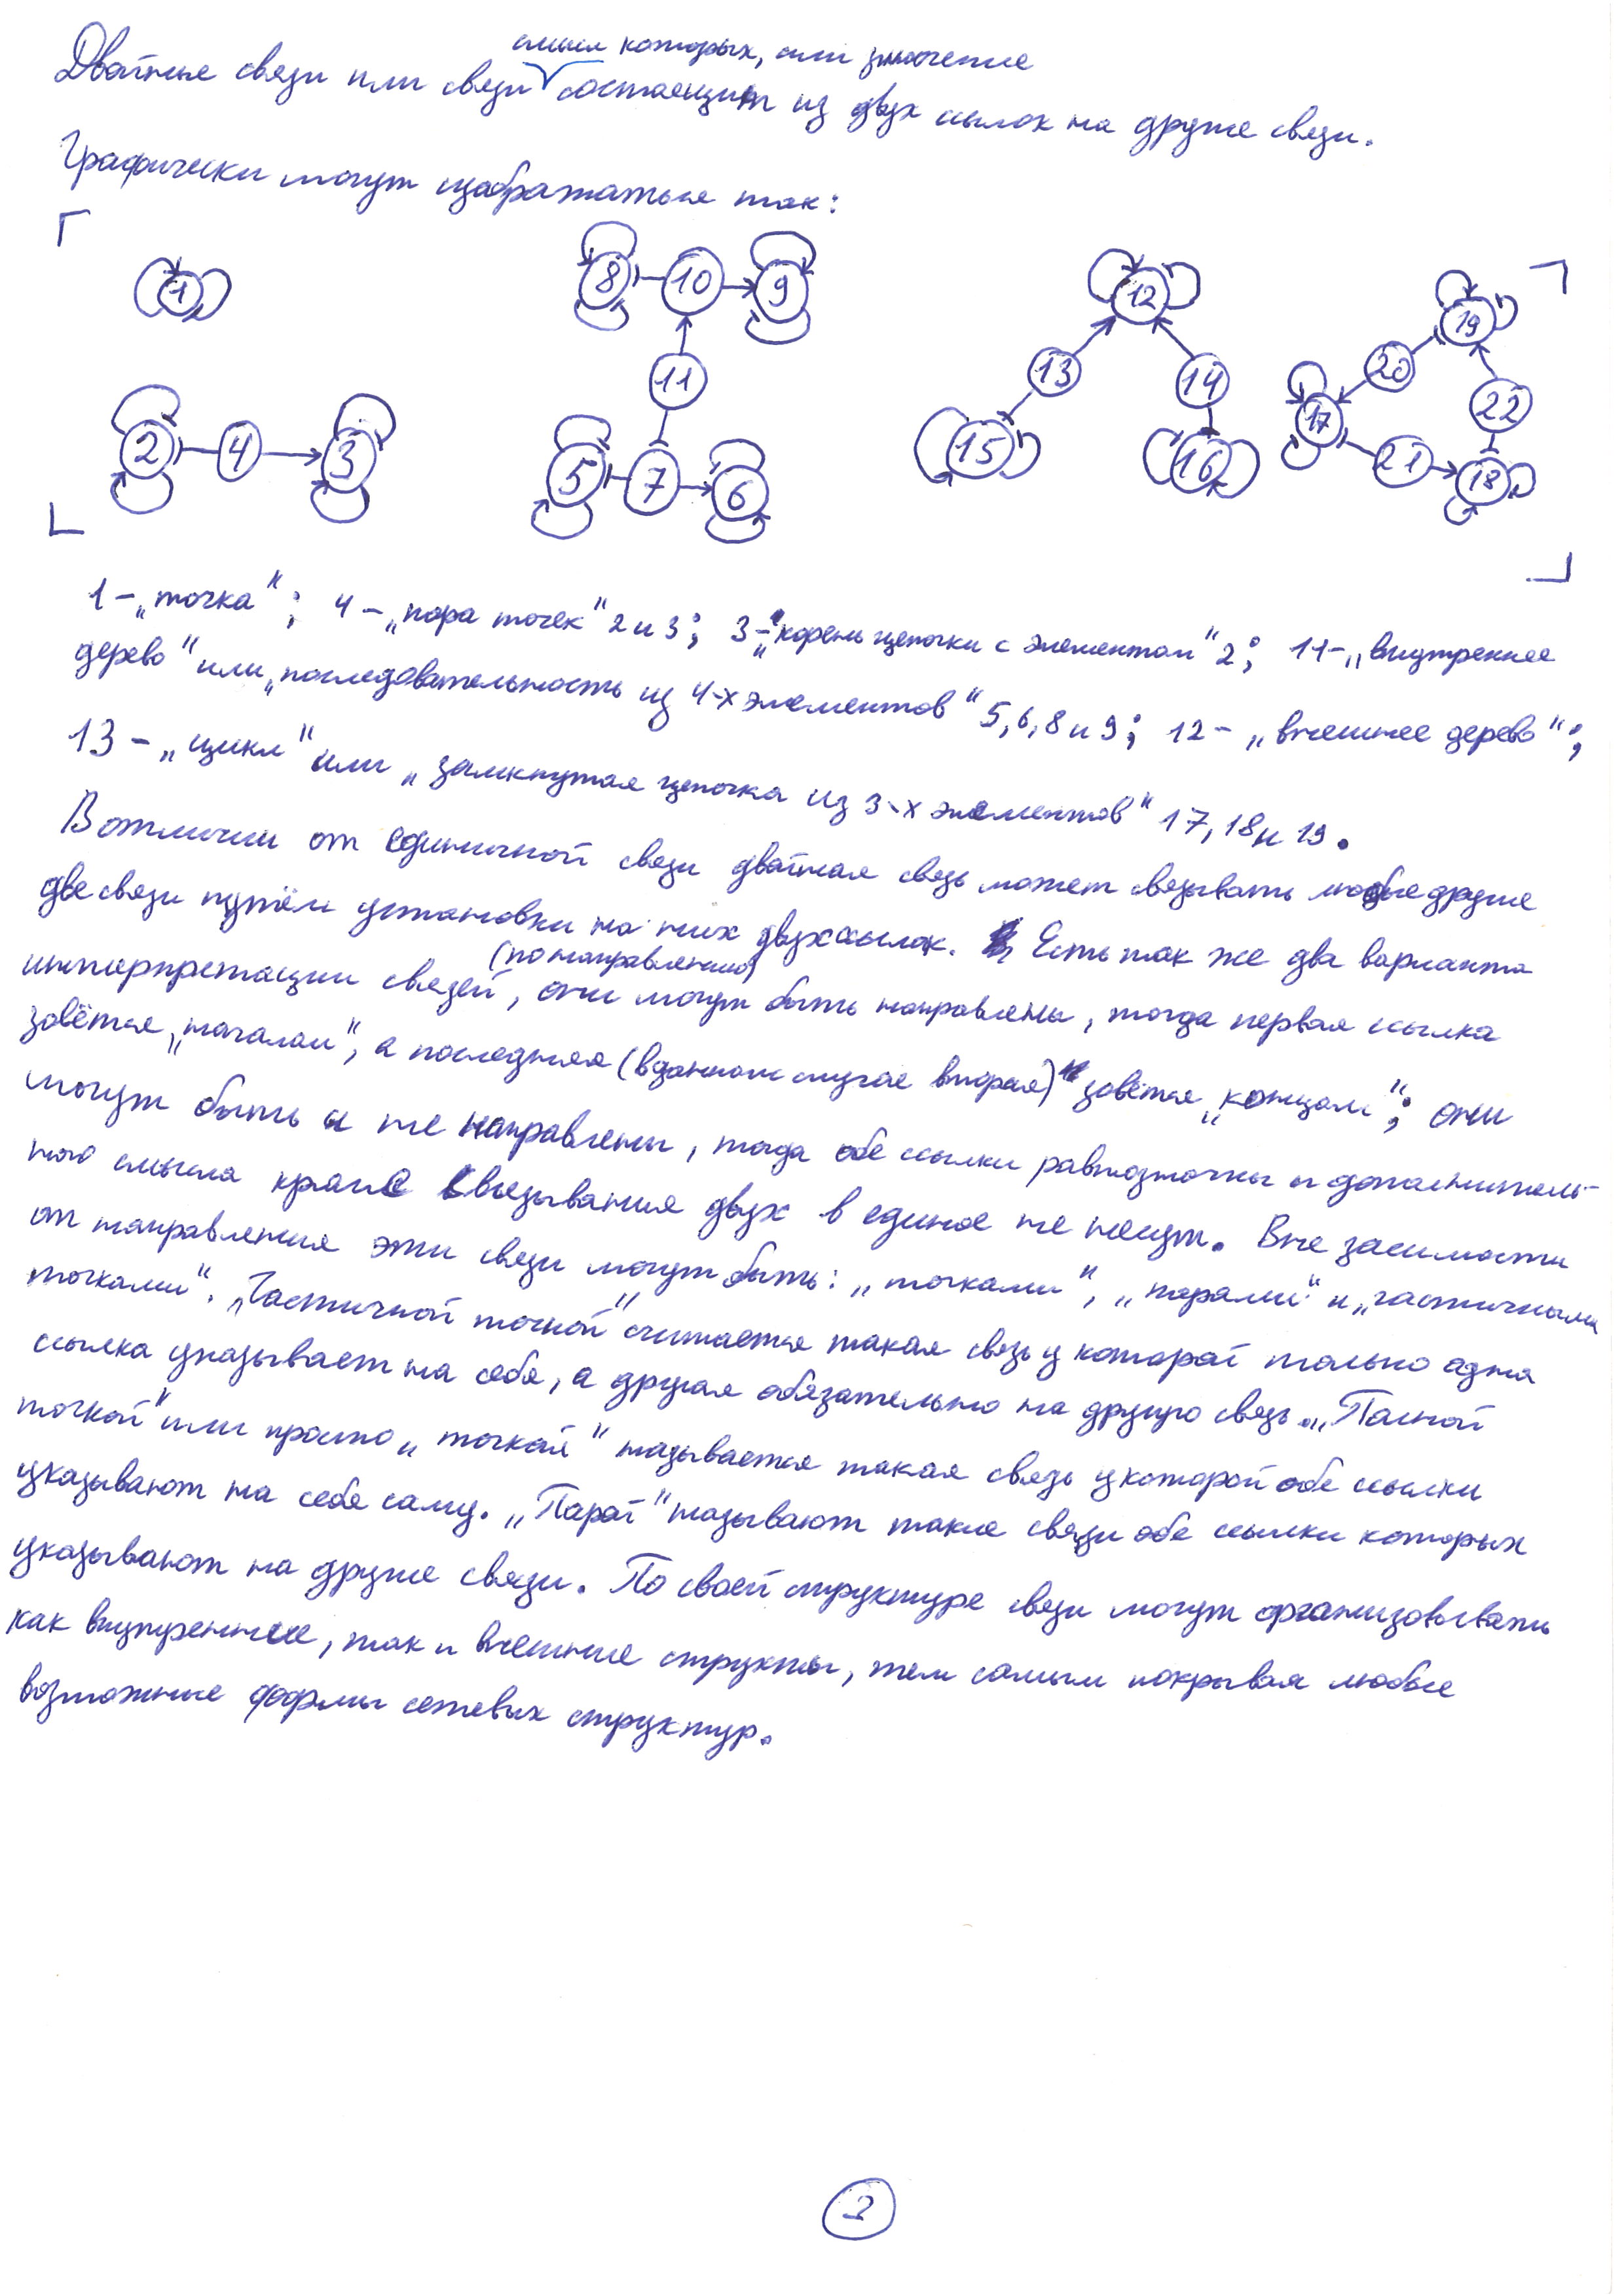 смысл которых, или значение
Двойные связи или связи состоящит из двух ссылок на другие связи.
Графически могут изображаться так:
8 10 9
1 12 19
11 13 14 20 22
2 4 3 5 7 6 15 16 17 21 18
1 – „точка“; 4 – „пара точек“ 2 и 3; 3 – „корень цепочки с элементом“ 2; 11 – „внутреннее
дерево“ или „последовательность из 4-х элементов“ 5, 6, 8 и 9; 12 – „внешнее дерево“;
13 – „цикл“ или „замкнутая цепочка из 3-х элементов“ 17, 18 и 19.
В отличии от единичной связи двойная связь может связывать любые другие
две связи путём установки на них двух ссылок. Есть так же два варианта
(по направлению)
интерпретации связей, они могут быть направлены, тогда первая ссылка
зовётся „началом“, а последняя (в данном случае вторая) зовётся „концом“; они
могут быть и не направлены, тогда обе ссылки равнозначны и дополнитель-
ного смысла кроме связывания двух в единое не несут. Вне засимости
от направления эти связи могут быть: „точками“, „парами“ и „частичными
точками“. „Частичной точкой“ считается такая связь у которой только одна
ссылка указывает на себя, а другая обязательно на другую связь. „Полной
точкой“ или просто „точкой“ называется такая связь у которой обе ссылки
указывают на себя саму. „Парой“ называют такие связи обе ссылки которых
указывают на другие связи. По своей структуре связи могут организовывать
как внутренние, так и внешние структы, тем самым покрывая любые
возможные формы сетевых структур.
2